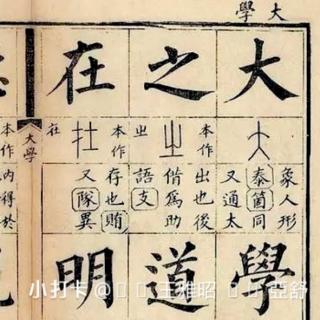 大學
大
象人形
泰箇同
又通太
學
之
本作
出也後
借為助
㞢
語支
道
在
本作
存也賄
又隊異
在
明
大學
本作
内得於
小打卡@王雅昭 亞舒